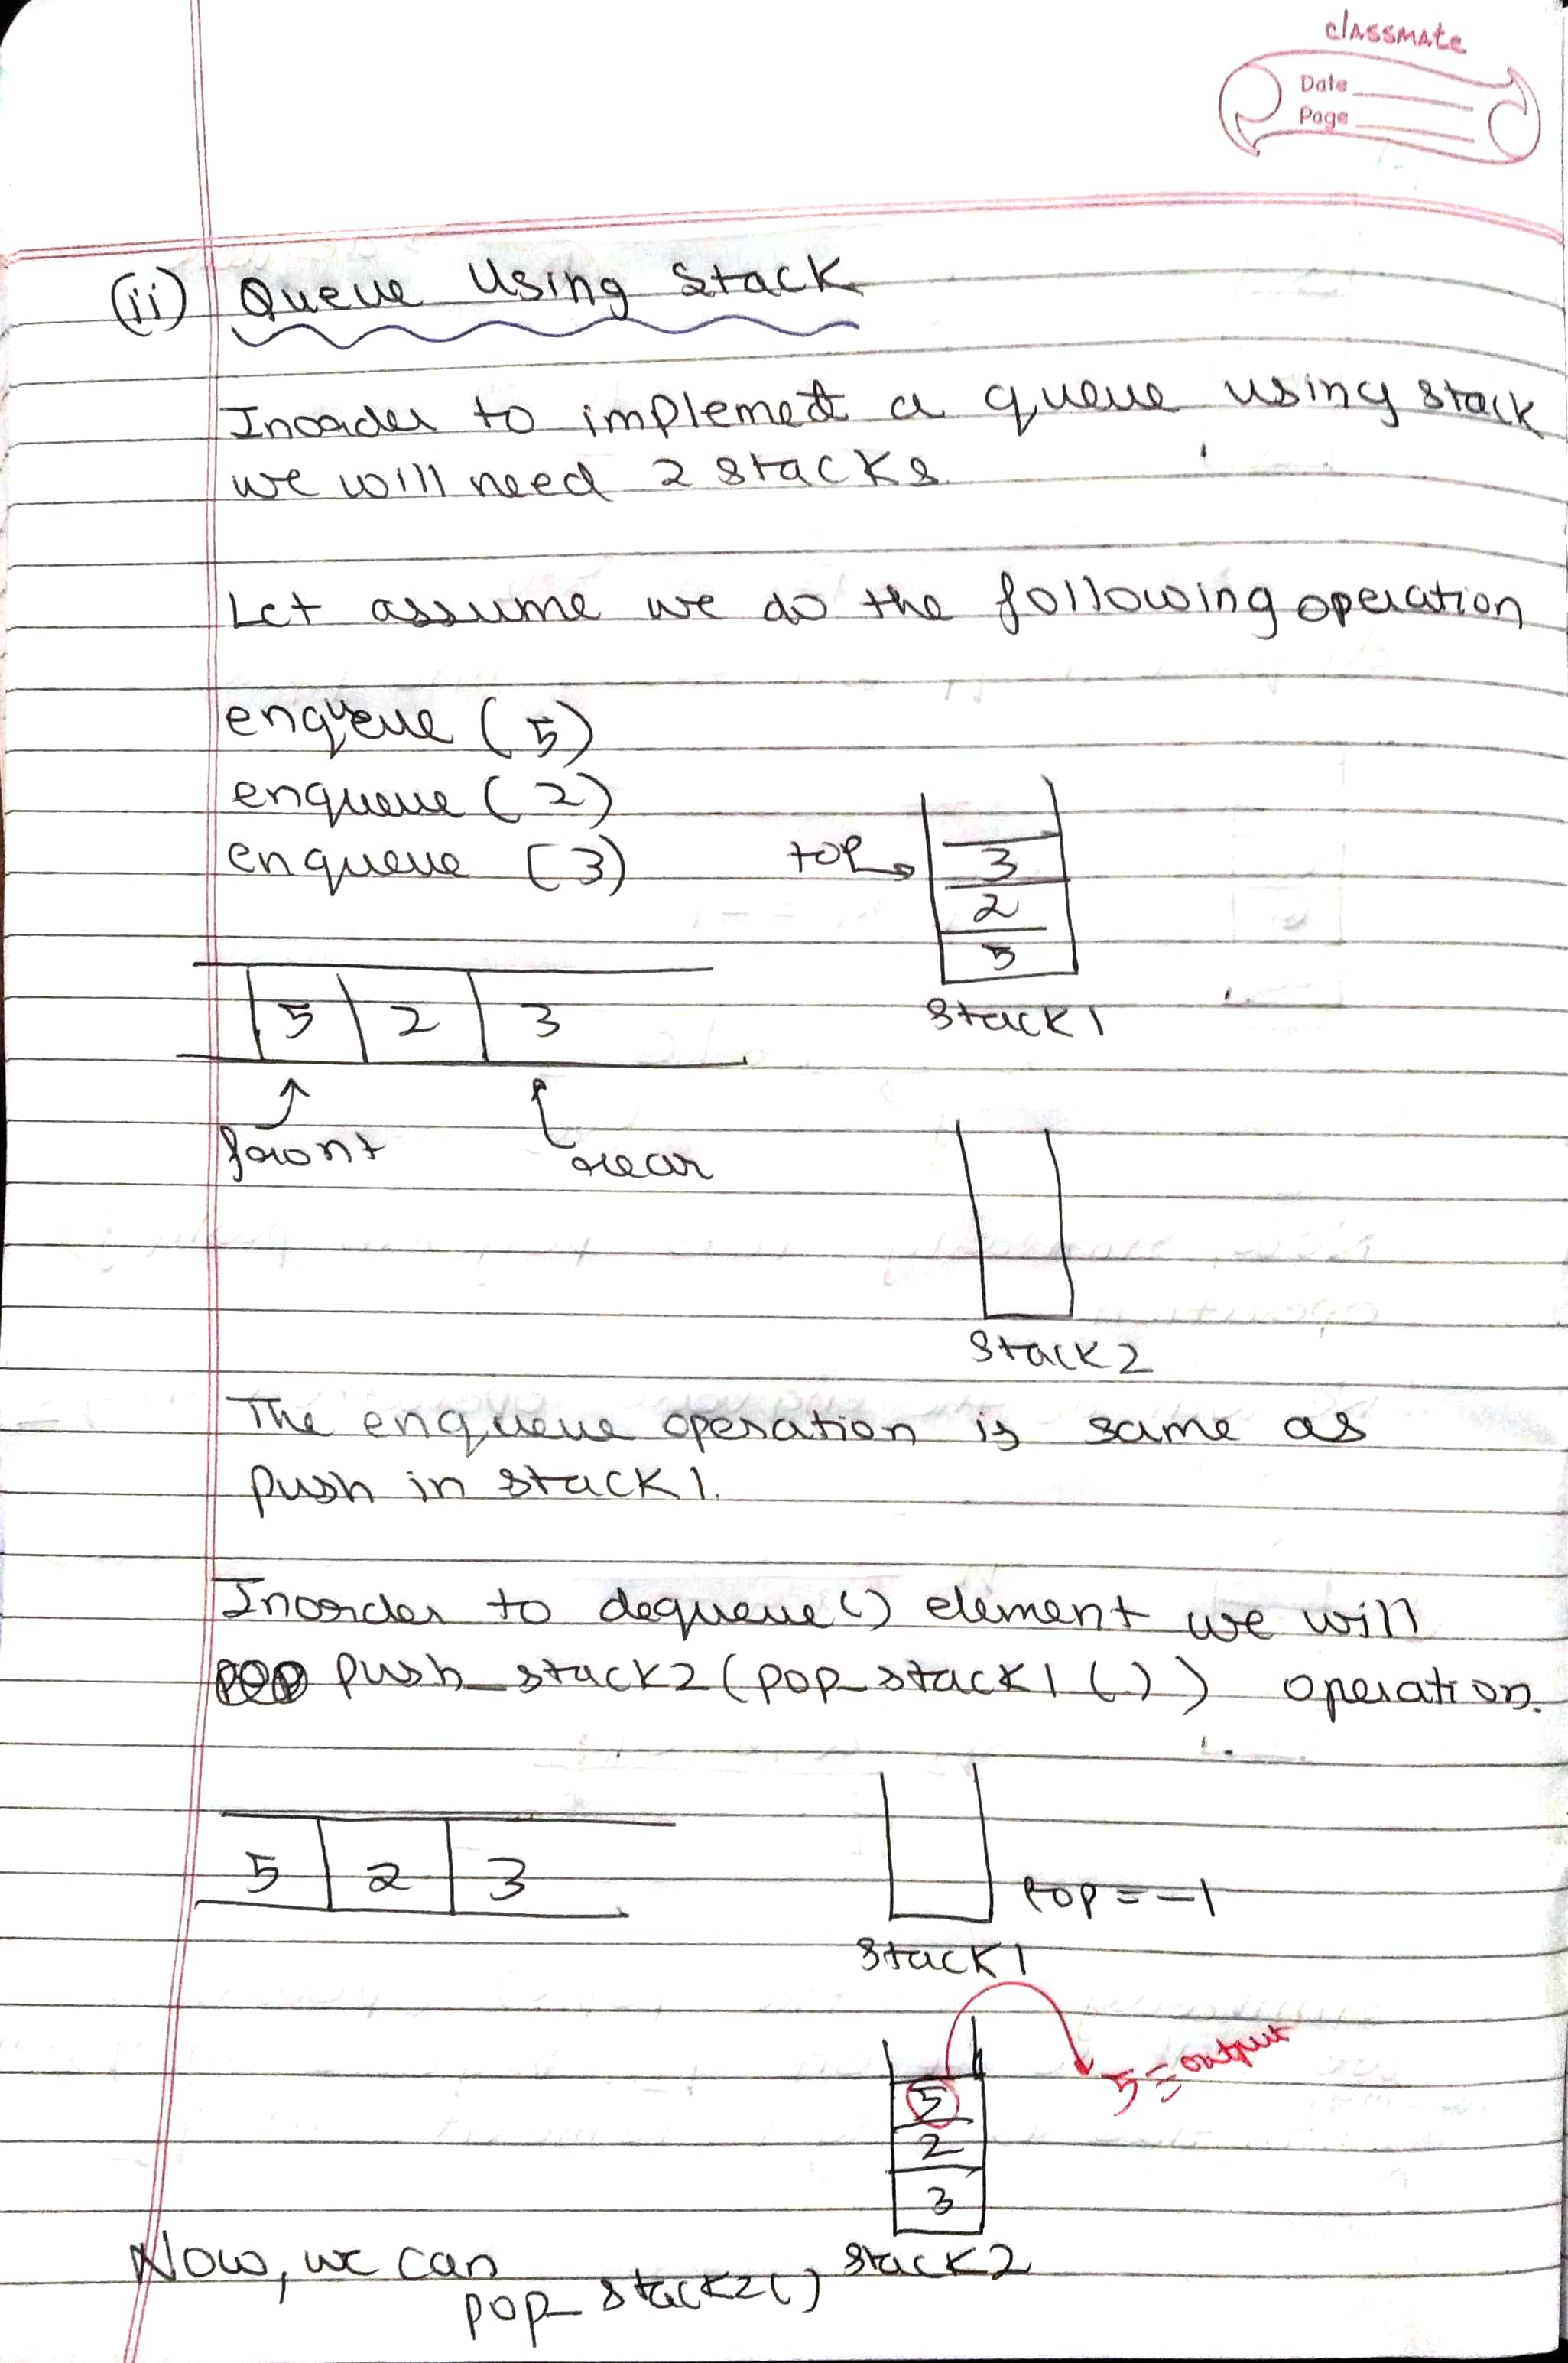 classmate
Date
Page
(ii) Queue Using Stack
Inorder to implemet a queue using stack
we will need 2 stacks
Let assume we do the following operation
enqueue (5)
enqueue (2)
enqueue (3)
top
3
2
5
stack1
5 2 3
front
rear
stack2
The enqueue operation is same as
push in stack1.
Inorder to dequeue() element we will
push_stack2(pop_stack1()) operation.
5 2 3
top = -1
stack1
5 = output
5
2
3
stack2
Now, we can
pop_stack2()